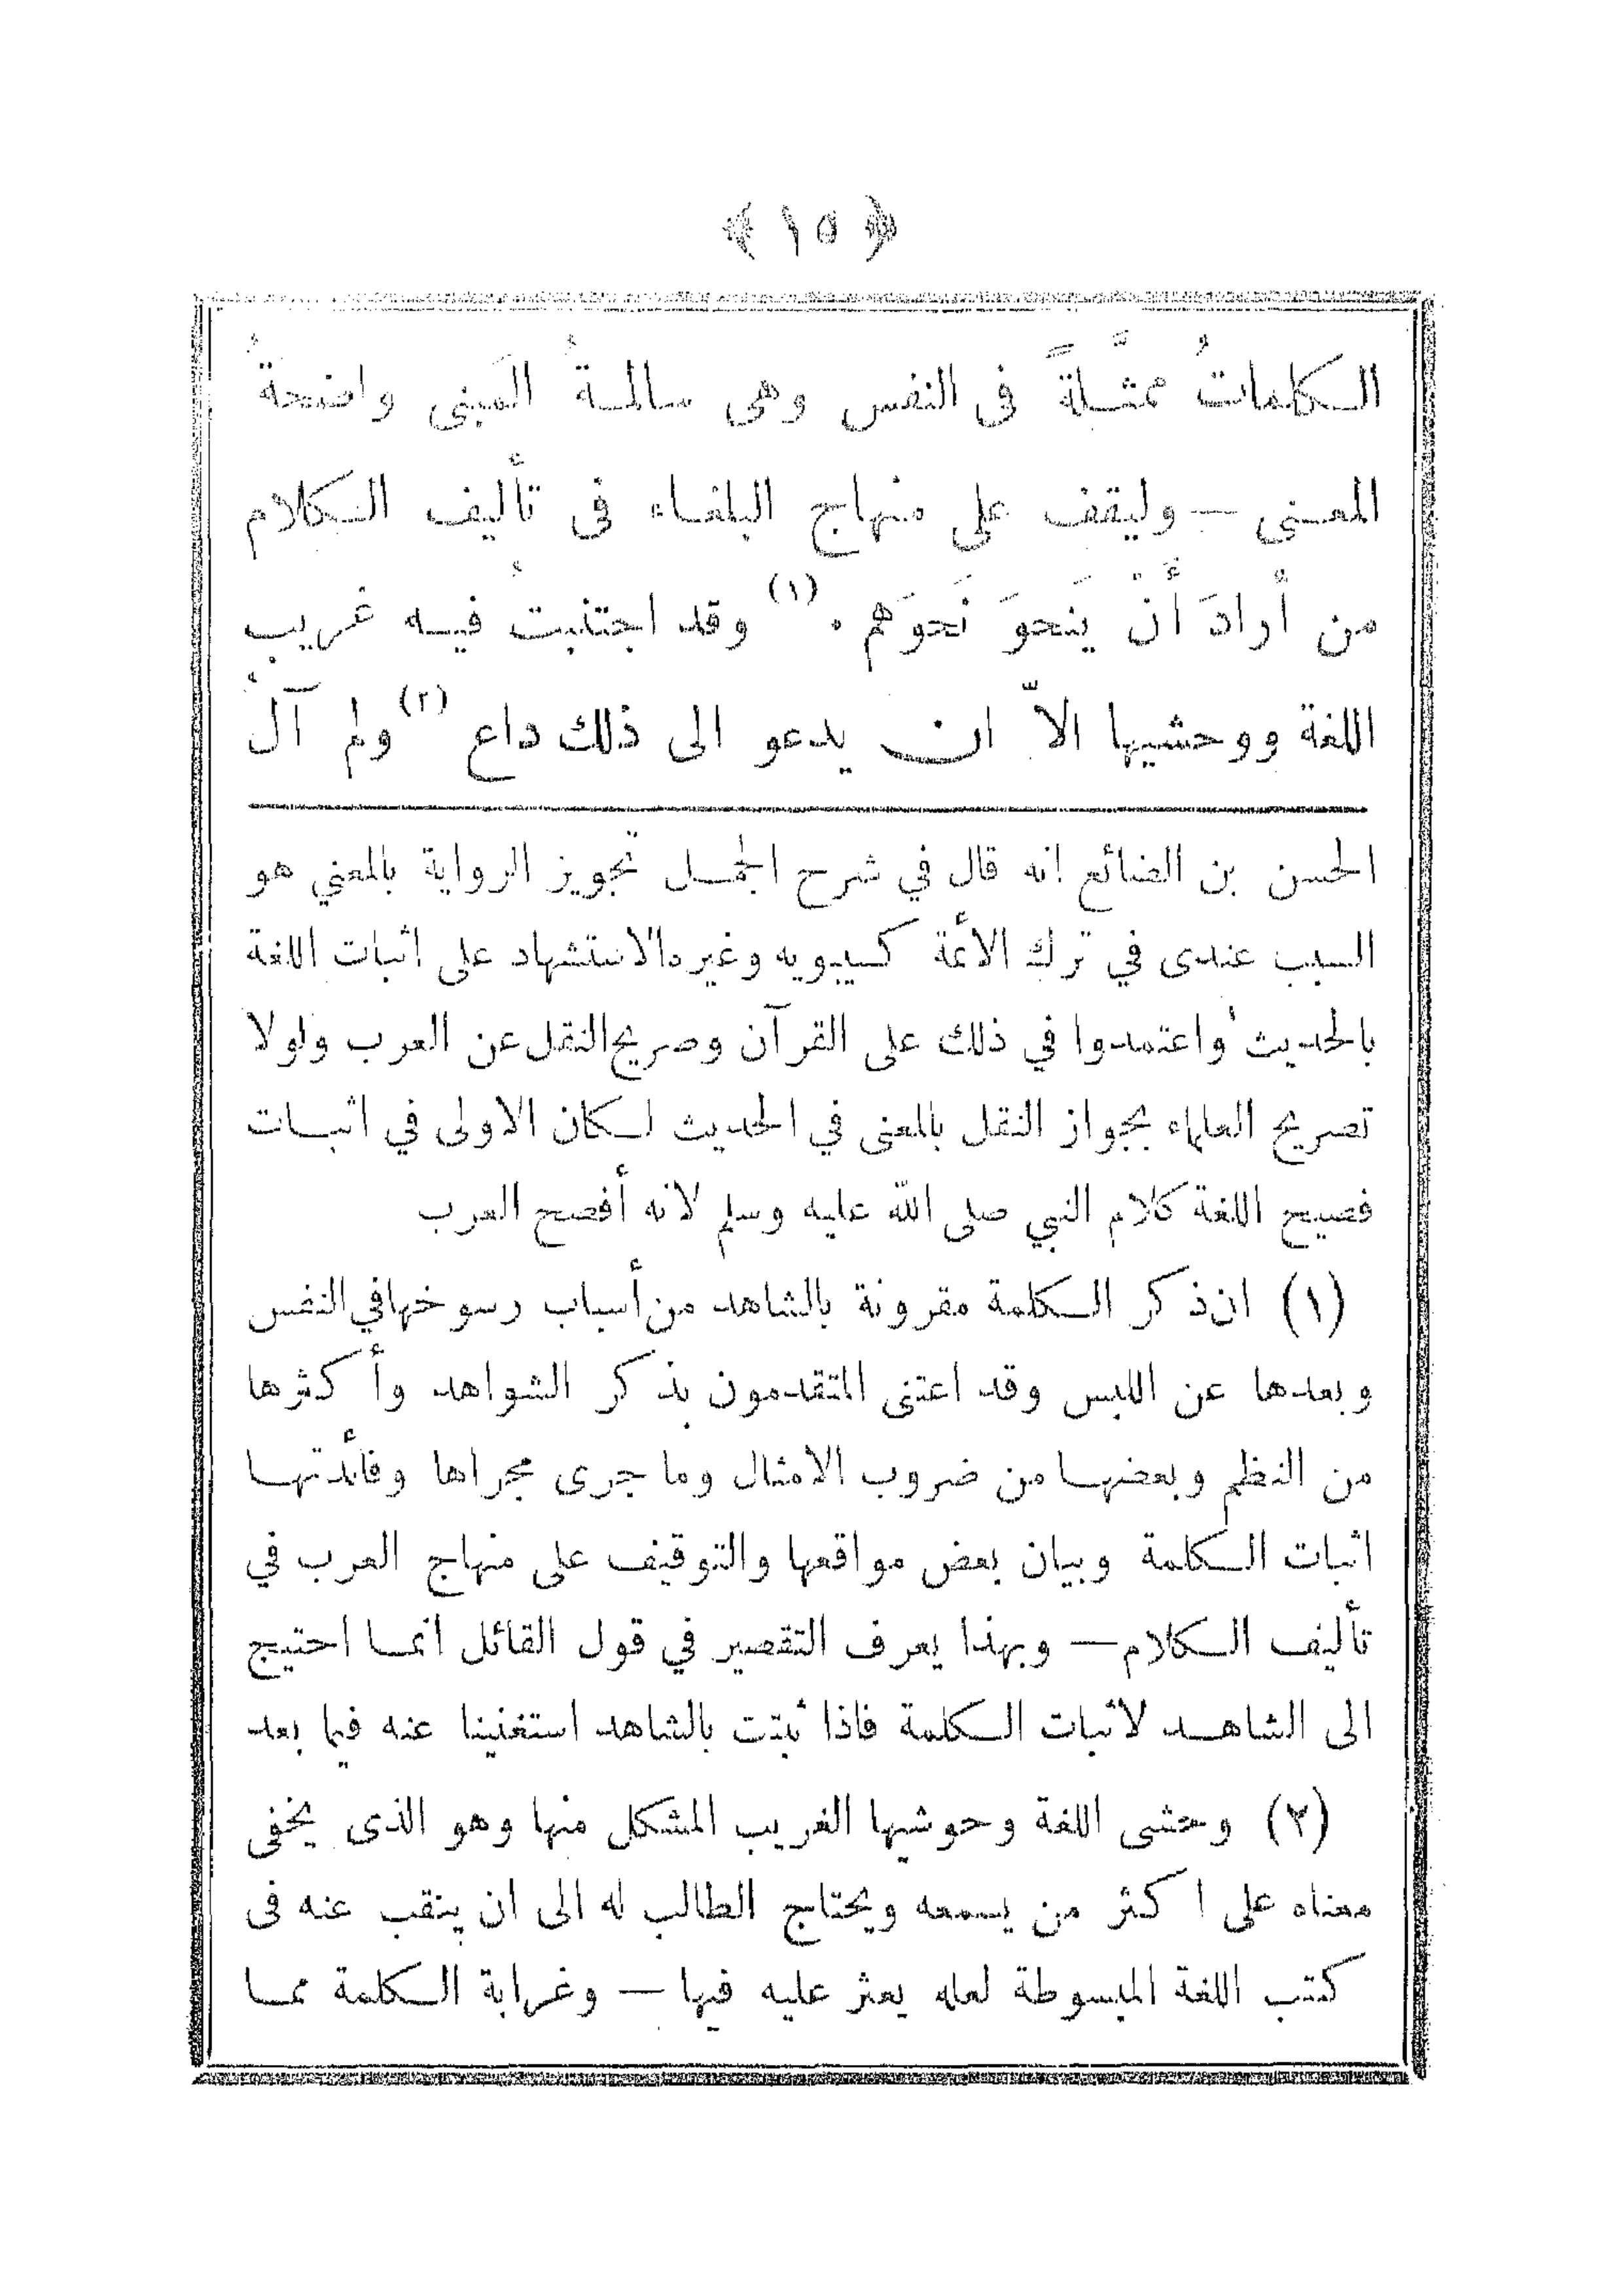 ﴿ ١٥ ﴾
الكلماتُ ممثَّلةً فى النفس وهى سالمةُ المَبنى واضحةُ
المعنى — وليقف على منهاج البلغاء فى تأليف الكلام
من أرادَ أَنْ يَنحوَ نَحوَهم . (١) وقد اجتنبتُ فيه غريبَ
اللغة ووحشيها الاّ ان يدعو الى ذلك داع (٢) ولم آلُ
الحسن بن الضائع انه قال في شرح الجمل تجويز الرواية بالمعني هو
السبب عندى في ترك الأئمة كسيبويه وغيره الاستشهاد على اثبات اللغة
بالحديث واعتمدوا في ذلك على القرآن وصريح النقل عن العرب ولولا
تصريح العلماء بجواز النقل بالمعنى في الحديث لكان الاولى في اثبات
فصيح اللغة كلام النبي صلى الله عليه وسلم لانه أفصح العرب
(١) ان ذكر الكلمة مقرونة بالشاهد من أسباب رسوخها في النفس
وبعدها عن اللبس وقد اعتنى المتقدمون بذكر الشواهد وأكثرها
من النظم وبعضها من ضروب الامثال وما جرى مجراها وفائدتها
اثبات الكلمة وبيان بعض مواقعها والتوقيف على منهاج العرب في
تأليف الكلام — وبهذا يعرف التقصير في قول القائل انما احتيج
الى الشاهد لاثبات الكلمة فاذا ثبتت بالشاهد استغنينا عنه فيما بعد
(٢) وحشى اللغة وحوشيها الغريب المشكل منها وهو الذى يخفى
معناه على اكثر من يسمعه ويحتاج الطالب له الى ان ينقب عنه فى
كتب اللغة المبسوطة لعله يعثر عليه فيها — وغرابة الكلمة مما